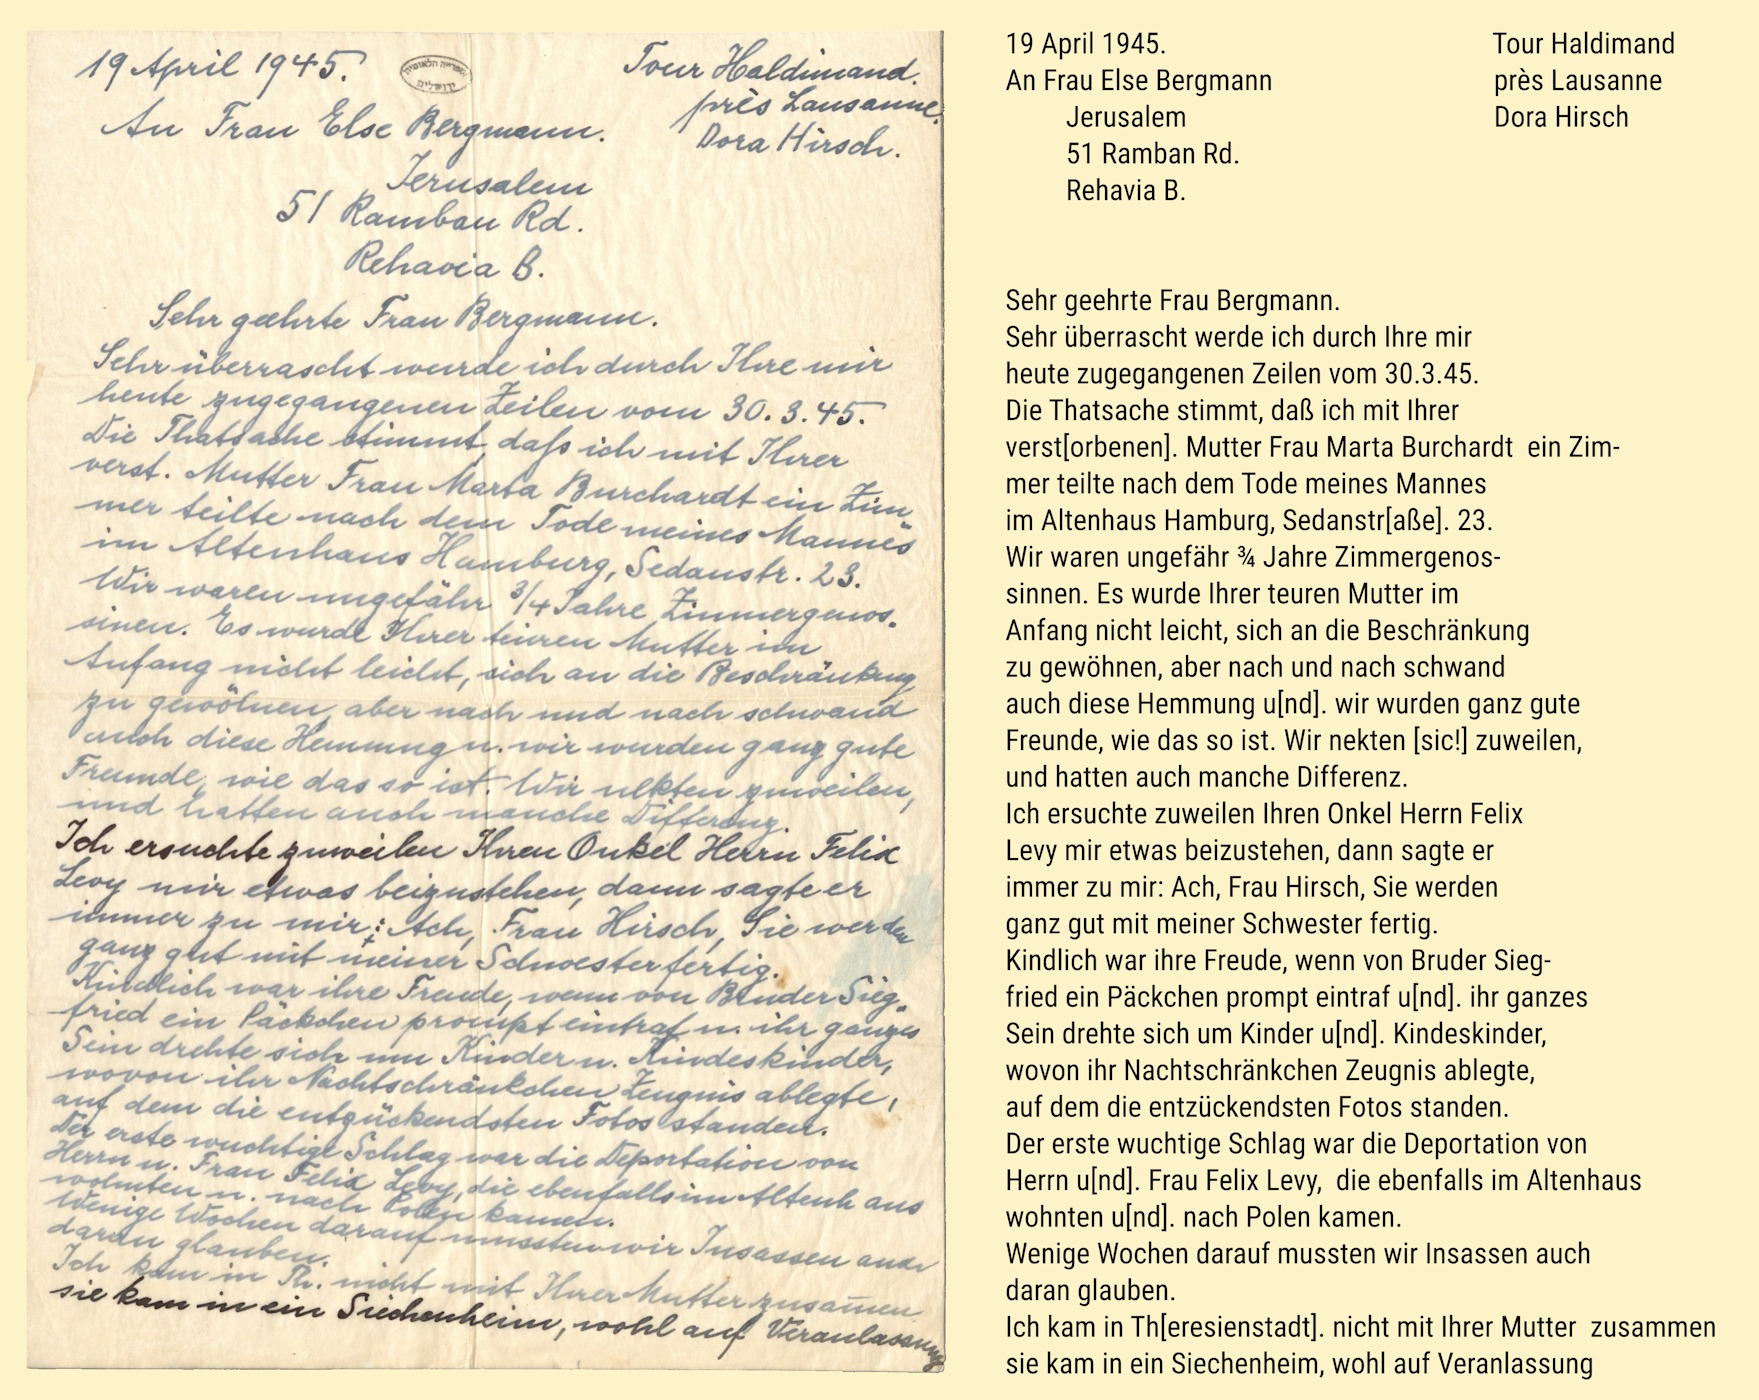 19 April 1945.
הספריה הלאומית
ירושלים
Tour Haldimand.
près Lausanne.
Dora Hirsch.
An Frau Else Bergmann.
Jerusalem
51 Ramban Rd.
Rehavia B.
Sehr geehrte Frau Bergmann.
Sehr überrascht werde ich durch Ihre mir
heute zugegangenen Zeilen vom 30.3.45.
Die Thatsache stimmt, daß ich mit Ihrer
verst. Mutter Frau Marta Burchardt ein Zim-
mer teilte nach dem Tode meines Mannes
im Altenhaus Hamburg, Sedanstr. 23.
Wir waren ungefähr 3/4 Jahre Zimmergenos-
sinen. Es wurde Ihrer teuren Mutter im
Anfang nicht leicht, sich an die Beschränkung
zu gewöhnen, aber nach und nach schwand
auch diese Hemmung u. wir wurden ganz gute
Freunde, wie das so ist. Wir ulkten zuweilen,
und hatten auch manche Differenz.
Ich ersuchte zuweilen Ihren Onkel Herrn Felix
Levy mir etwas beizustehen, dann sagte er
immer zu mir: Ach, Frau Hirsch, Sie werden
ganz gut mit meiner Schwester fertig.
Kindlich war ihre Freude, wenn von Bruder Sieg-
fried ein Päckchen prompt eintraf u. ihr ganzes
Sein drehte sich um Kinder u. Kindeskinder,
wovon ihr Nachtschränkchen Zeugnis ablegte,
auf dem die entzückendsten Fotos standen.
Der erste wuchtige Schlag war die Deportation von
Herrn u. Frau Felix Levy, die ebenfalls im Altenhaus
wohnten u. nach Polen kamen.
Wenige Wochen darauf mussten wir Insassen auch
daran glauben.
Ich kam in Th. nicht mit Ihrer Mutter zusam̄en
sie kam in ein Siechenheim, wohl auf Veranlassung
19 April 1945.
An Frau Else Bergmann
Jerusalem
51 Ramban Rd.
Rehavia B.
Tour Haldimand
près Lausanne
Dora Hirsch
Sehr geehrte Frau Bergmann.
Sehr überrascht werde ich durch Ihre mir
heute zugegangenen Zeilen vom 30.3.45.
Die Thatsache stimmt, daß ich mit Ihrer
verst[orbenen]. Mutter Frau Marta Burchardt ein Zim-
mer teilte nach dem Tode meines Mannes
im Altenhaus Hamburg, Sedanstr[aße]. 23.
Wir waren ungefähr ¾ Jahre Zimmergenos-
sinnen. Es wurde Ihrer teuren Mutter im
Anfang nicht leicht, sich an die Beschränkung
zu gewöhnen, aber nach und nach schwand
auch diese Hemmung u[nd]. wir wurden ganz gute
Freunde, wie das so ist. Wir nekten [sic!] zuweilen,
und hatten auch manche Differenz.
Ich ersuchte zuweilen Ihren Onkel Herrn Felix
Levy mir etwas beizustehen, dann sagte er
immer zu mir: Ach, Frau Hirsch, Sie werden
ganz gut mit meiner Schwester fertig.
Kindlich war ihre Freude, wenn von Bruder Sieg-
fried ein Päckchen prompt eintraf u[nd]. ihr ganzes
Sein drehte sich um Kinder u[nd]. Kindeskinder,
wovon ihr Nachtschränkchen Zeugnis ablegte,
auf dem die entzückendsten Fotos standen.
Der erste wuchtige Schlag war die Deportation von
Herrn u[nd]. Frau Felix Levy, die ebenfalls im Altenhaus
wohnten u[nd]. nach Polen kamen.
Wenige Wochen darauf mussten wir Insassen auch
daran glauben.
Ich kam in Th[eresienstadt]. nicht mit Ihrer Mutter zusammen
sie kam in ein Siechenheim, wohl auf Veranlassung